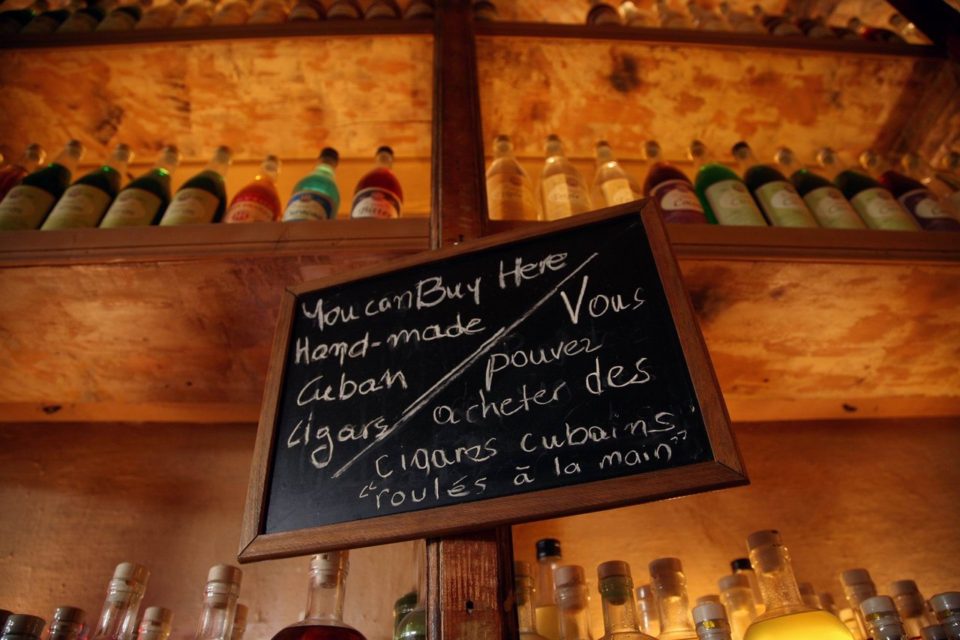 You can Buy Here
Hand-made
Cuban
Cigars
Vous
pouvez
acheter des
cigares cubains
"roulés à la main"